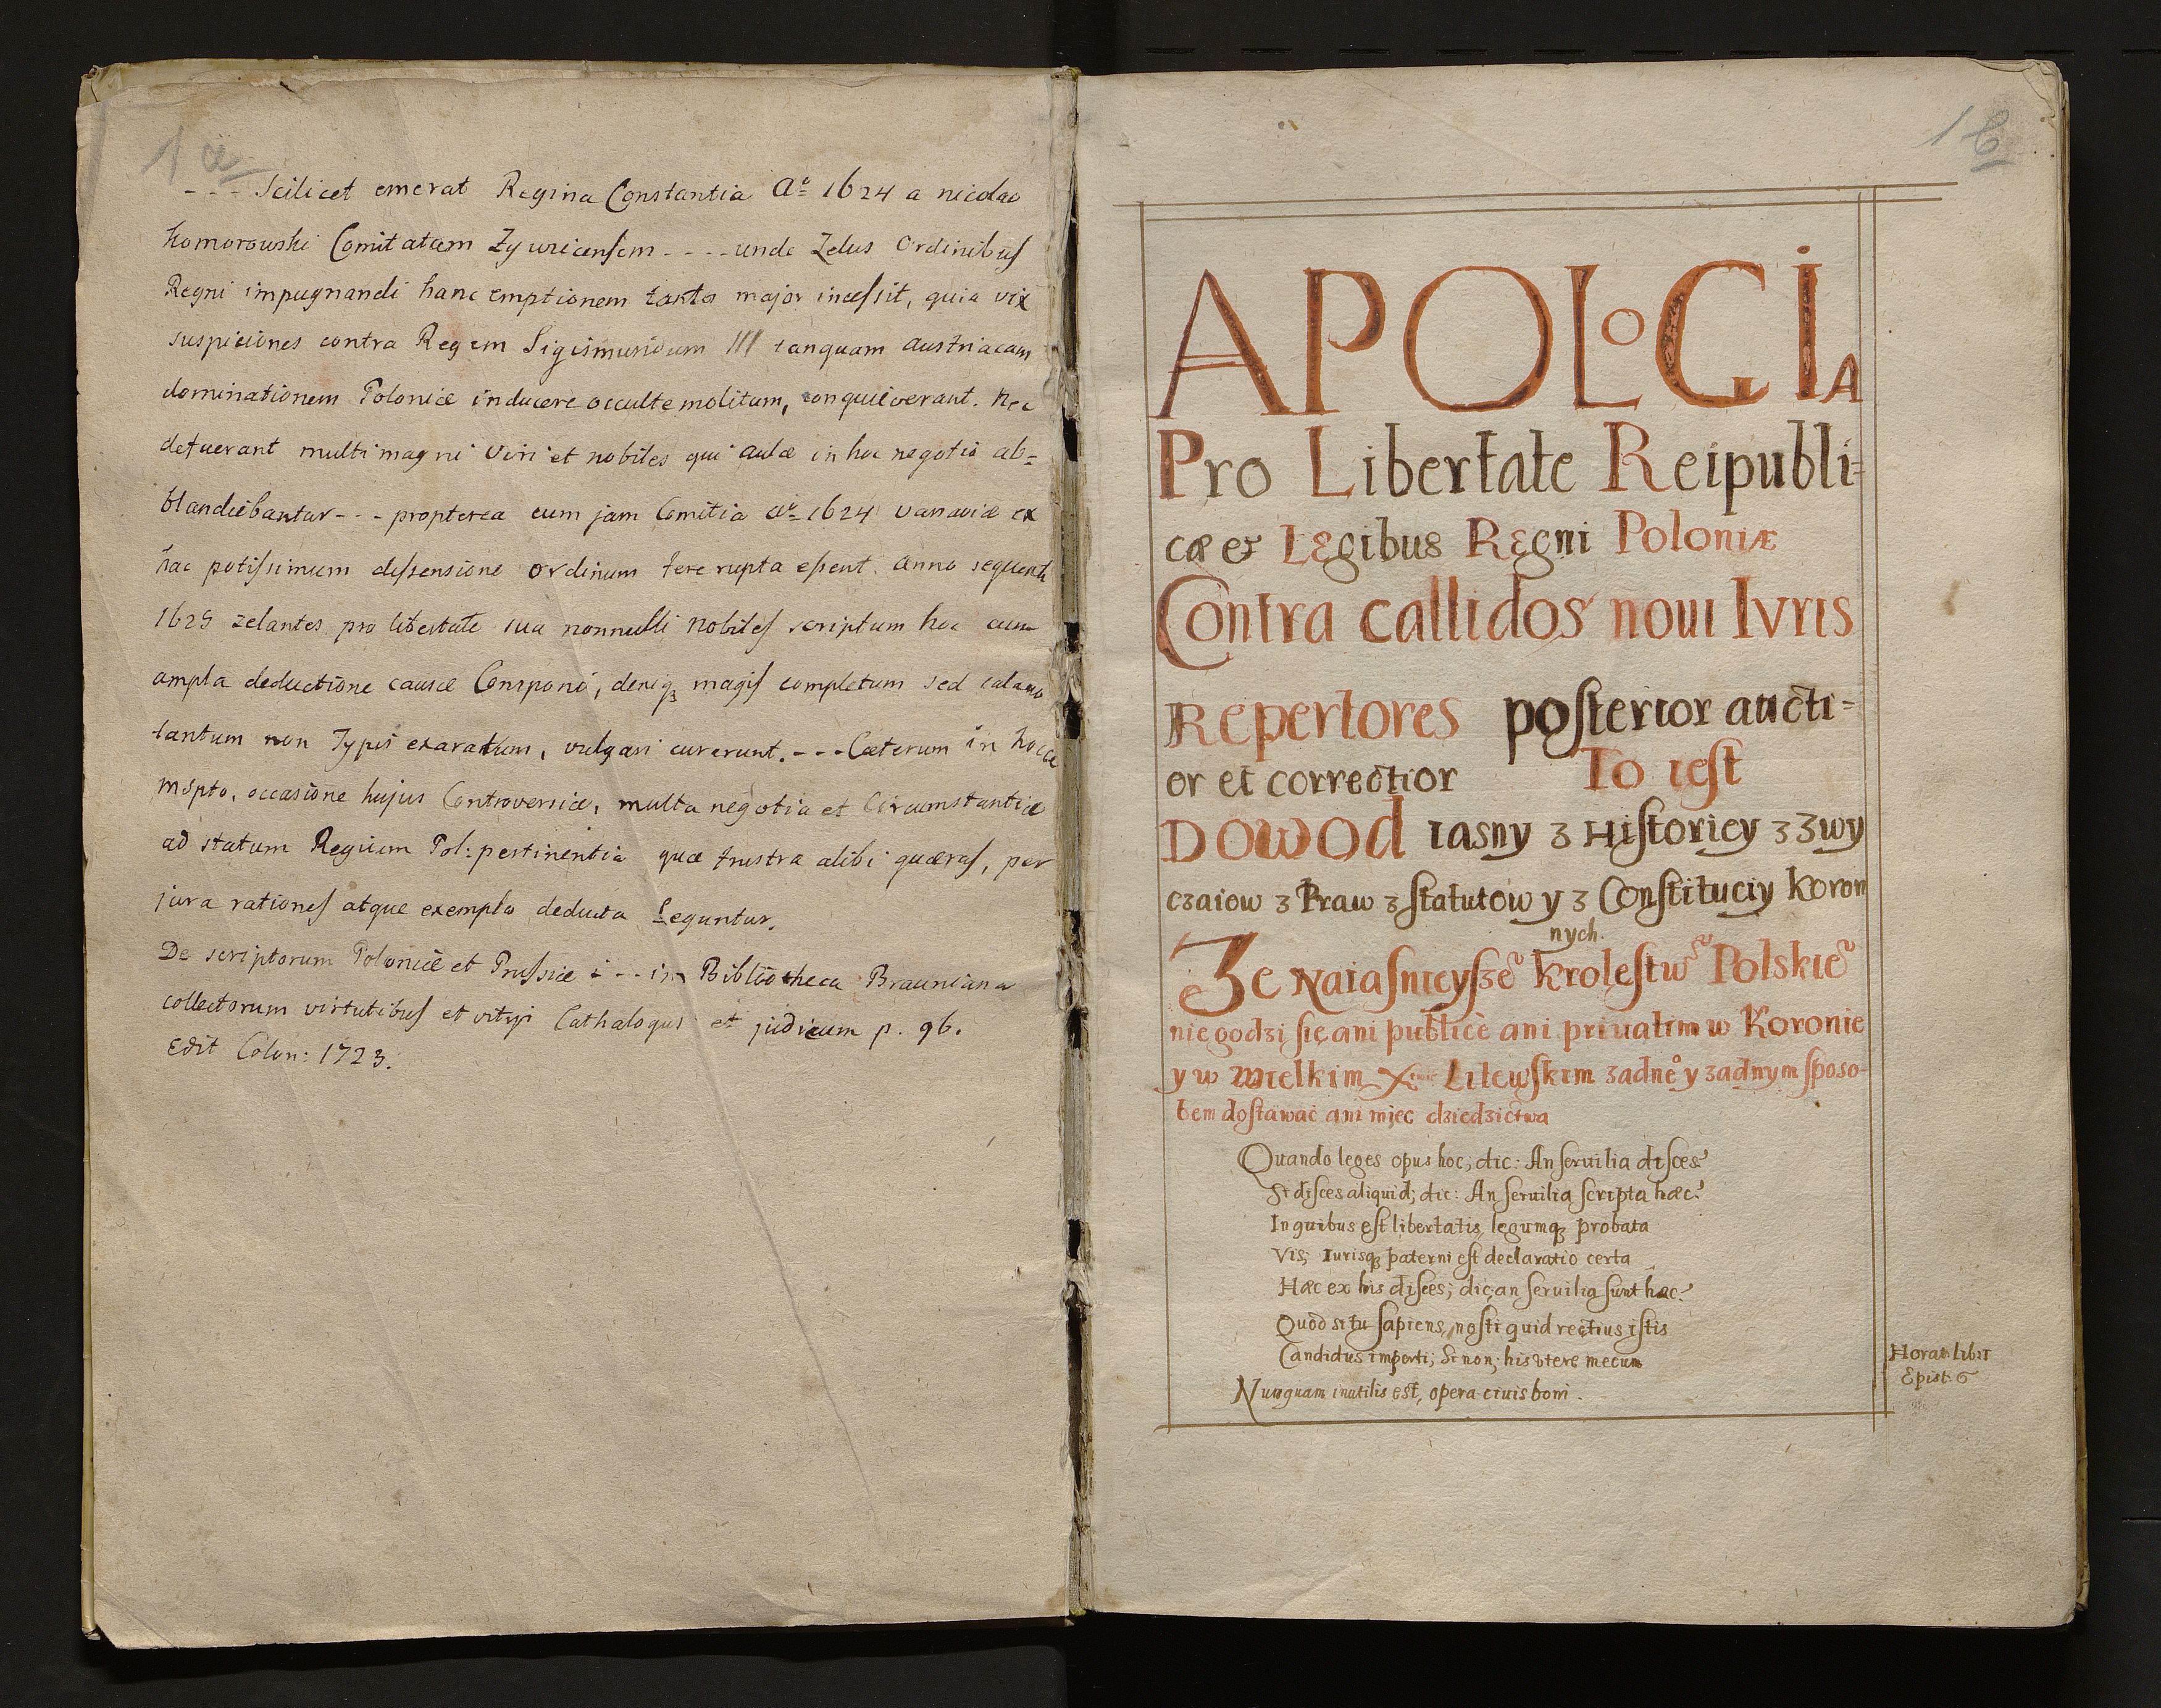 1 a
- - - Scilicet emerat Regina Constantia Aº 1624 a nicolao
Komorowski Comitatum Zywicensem - - - - unde Zelus Ordinibus
Regni impugnandi hanc emptionem tanto major incessit, quia vix
suspiciones contra Regem Sigismundum III tanquam austriacam
dominationem Poloniæ inducere occulte molitum, conquieverant. Nec
defuerant multi magni Viri et nobiles qui aulæ in hoc negotio ab=
blandiebantur - - - propterea cum jam Comitia aº 1624 Varsaviæ ex
hac potissimum dissensione ordinum fere rupta essent. anno sequenti
1625 zelantes pro libertate sua nonnulli Nobiles scriptum hoc cum
ampla deductione causæ Componi, deniqꝫ magis completum sed calamo
tantum non Typis exaratum, vulgari curerunt. - - - Cæterum in hocce
mspto, occasione hujus Controversiæ, multa negotia et Circumstantiæ
ad statum Regnum Pol: pertinentia quæ frustra alibi quæras, per
jura rationes atque exempla deducta Leguntur.
De scriptorum Poloniæ et Prussiæ i - - in Bibliotheca Brauniana
collectorum virtutibus et vitijs Cathalogus et judicum p. 96.
Edit Colon: 1723.
1 b
APOLOGIA
Pro Libertate Reipubli=
cæ & Legibus Regni Poloniæ
Contra callidos noui Ivris
Repertores posterior aucti=
or et correctior To iest
Dowod iasny z Historiey z Zwy
czaiow z Praw z Statutow y z Constituciy Koron
nych.
Ze Naiasnieysze° Krolestwª Polskie°
nie godzi się ani publicè ani priuatim w Koronie
y w Wielkim X Litewskim zadne° y zadnym sposo-
bem dostawać ani miec dziedzictwa
Quando leges opus hoc; dic: An seruilia disces?
Si disces aliquid; dic: An seruilia scripta hæc?
In quibus est libertatis, legumqꝫ probata
Vis; Iurisqꝫ paterni est declaratio certa
Hæc ex his disces; dic, an seruilia sunt hæc?
Quòd si tu sapiens, nosti quid rectius istis
Candidus imperti; Si non; his vtere mecum
Nunquam inutilis est, opera ciuis boni.
Horat: Lib: I
Epist: 6